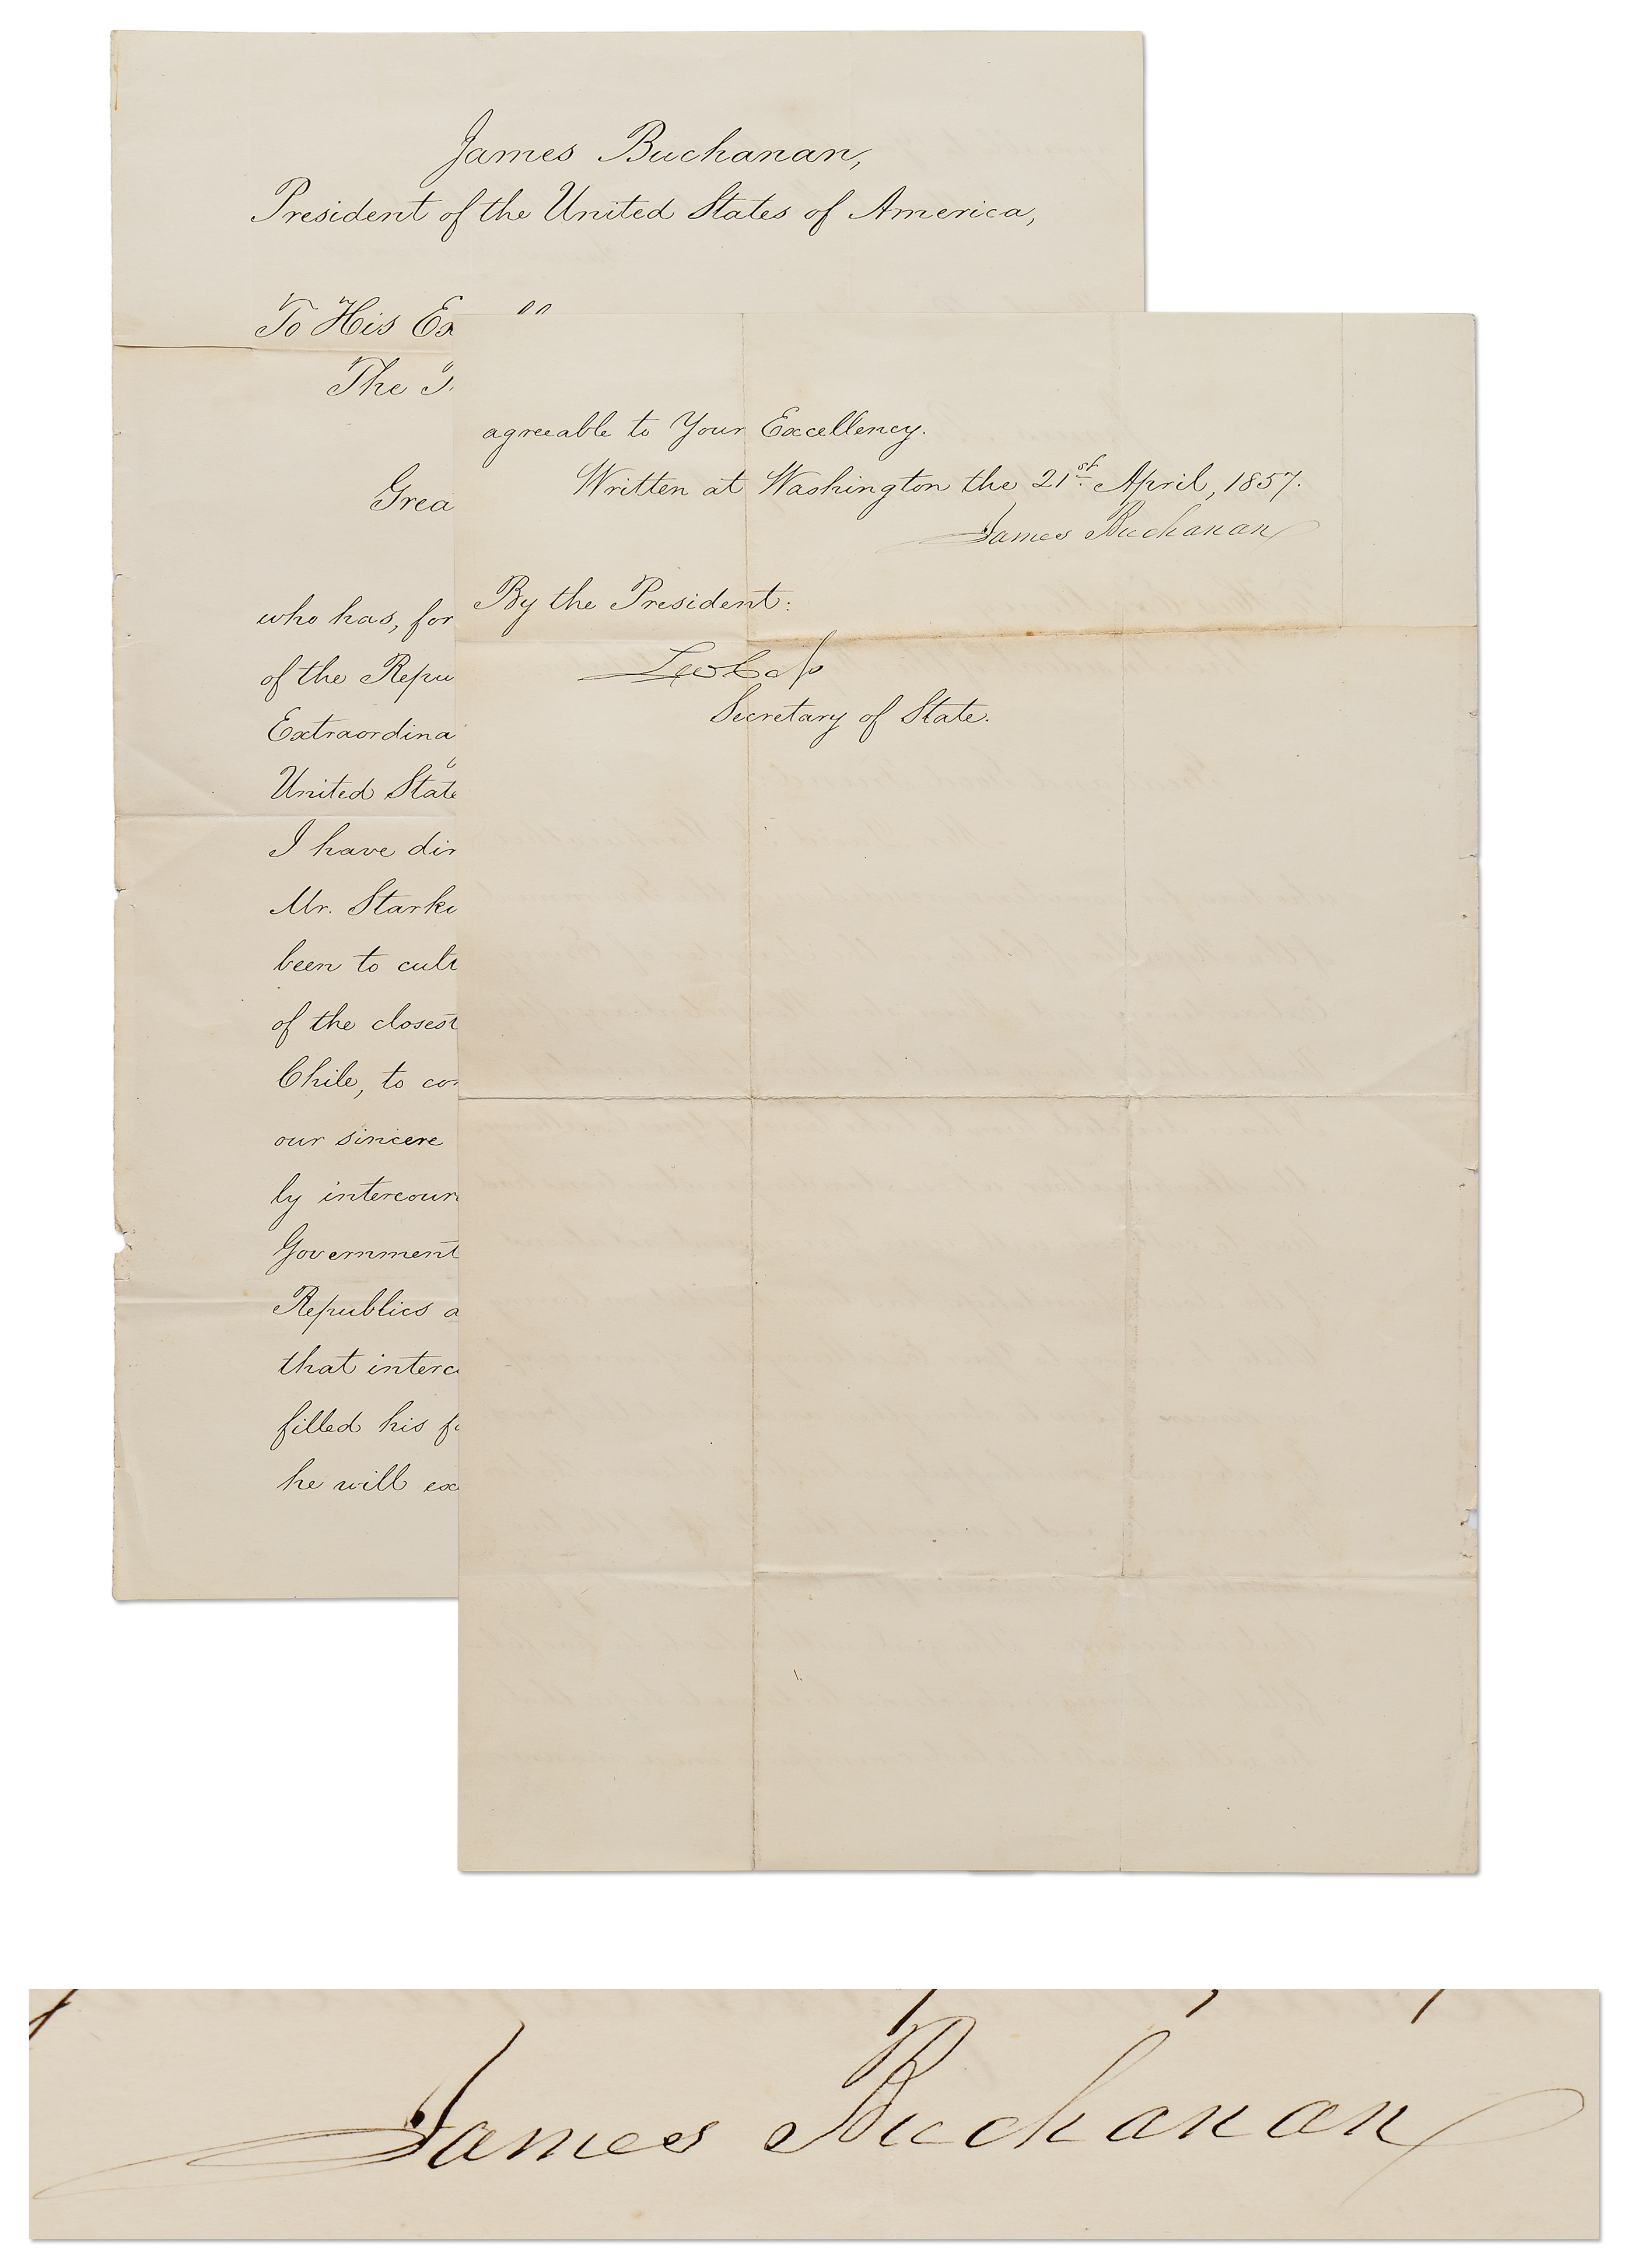 James Buchanan,
President of the United States of America,
To His Ex
The
Grea
who has, for
of the Repu
Extraordina
United State
I have dir
Mr. Starkw
been to cult
of the closest
Chile, to con
our sincere
ly intercour
Government
Republics a
that interco
filled his fo
he will ex
agreeable to Your Excellency.
Written at Washington the 21st April, 1857.
James Buchanan
By the President:
Lew Cass
Secretary of State.
James Buchanan